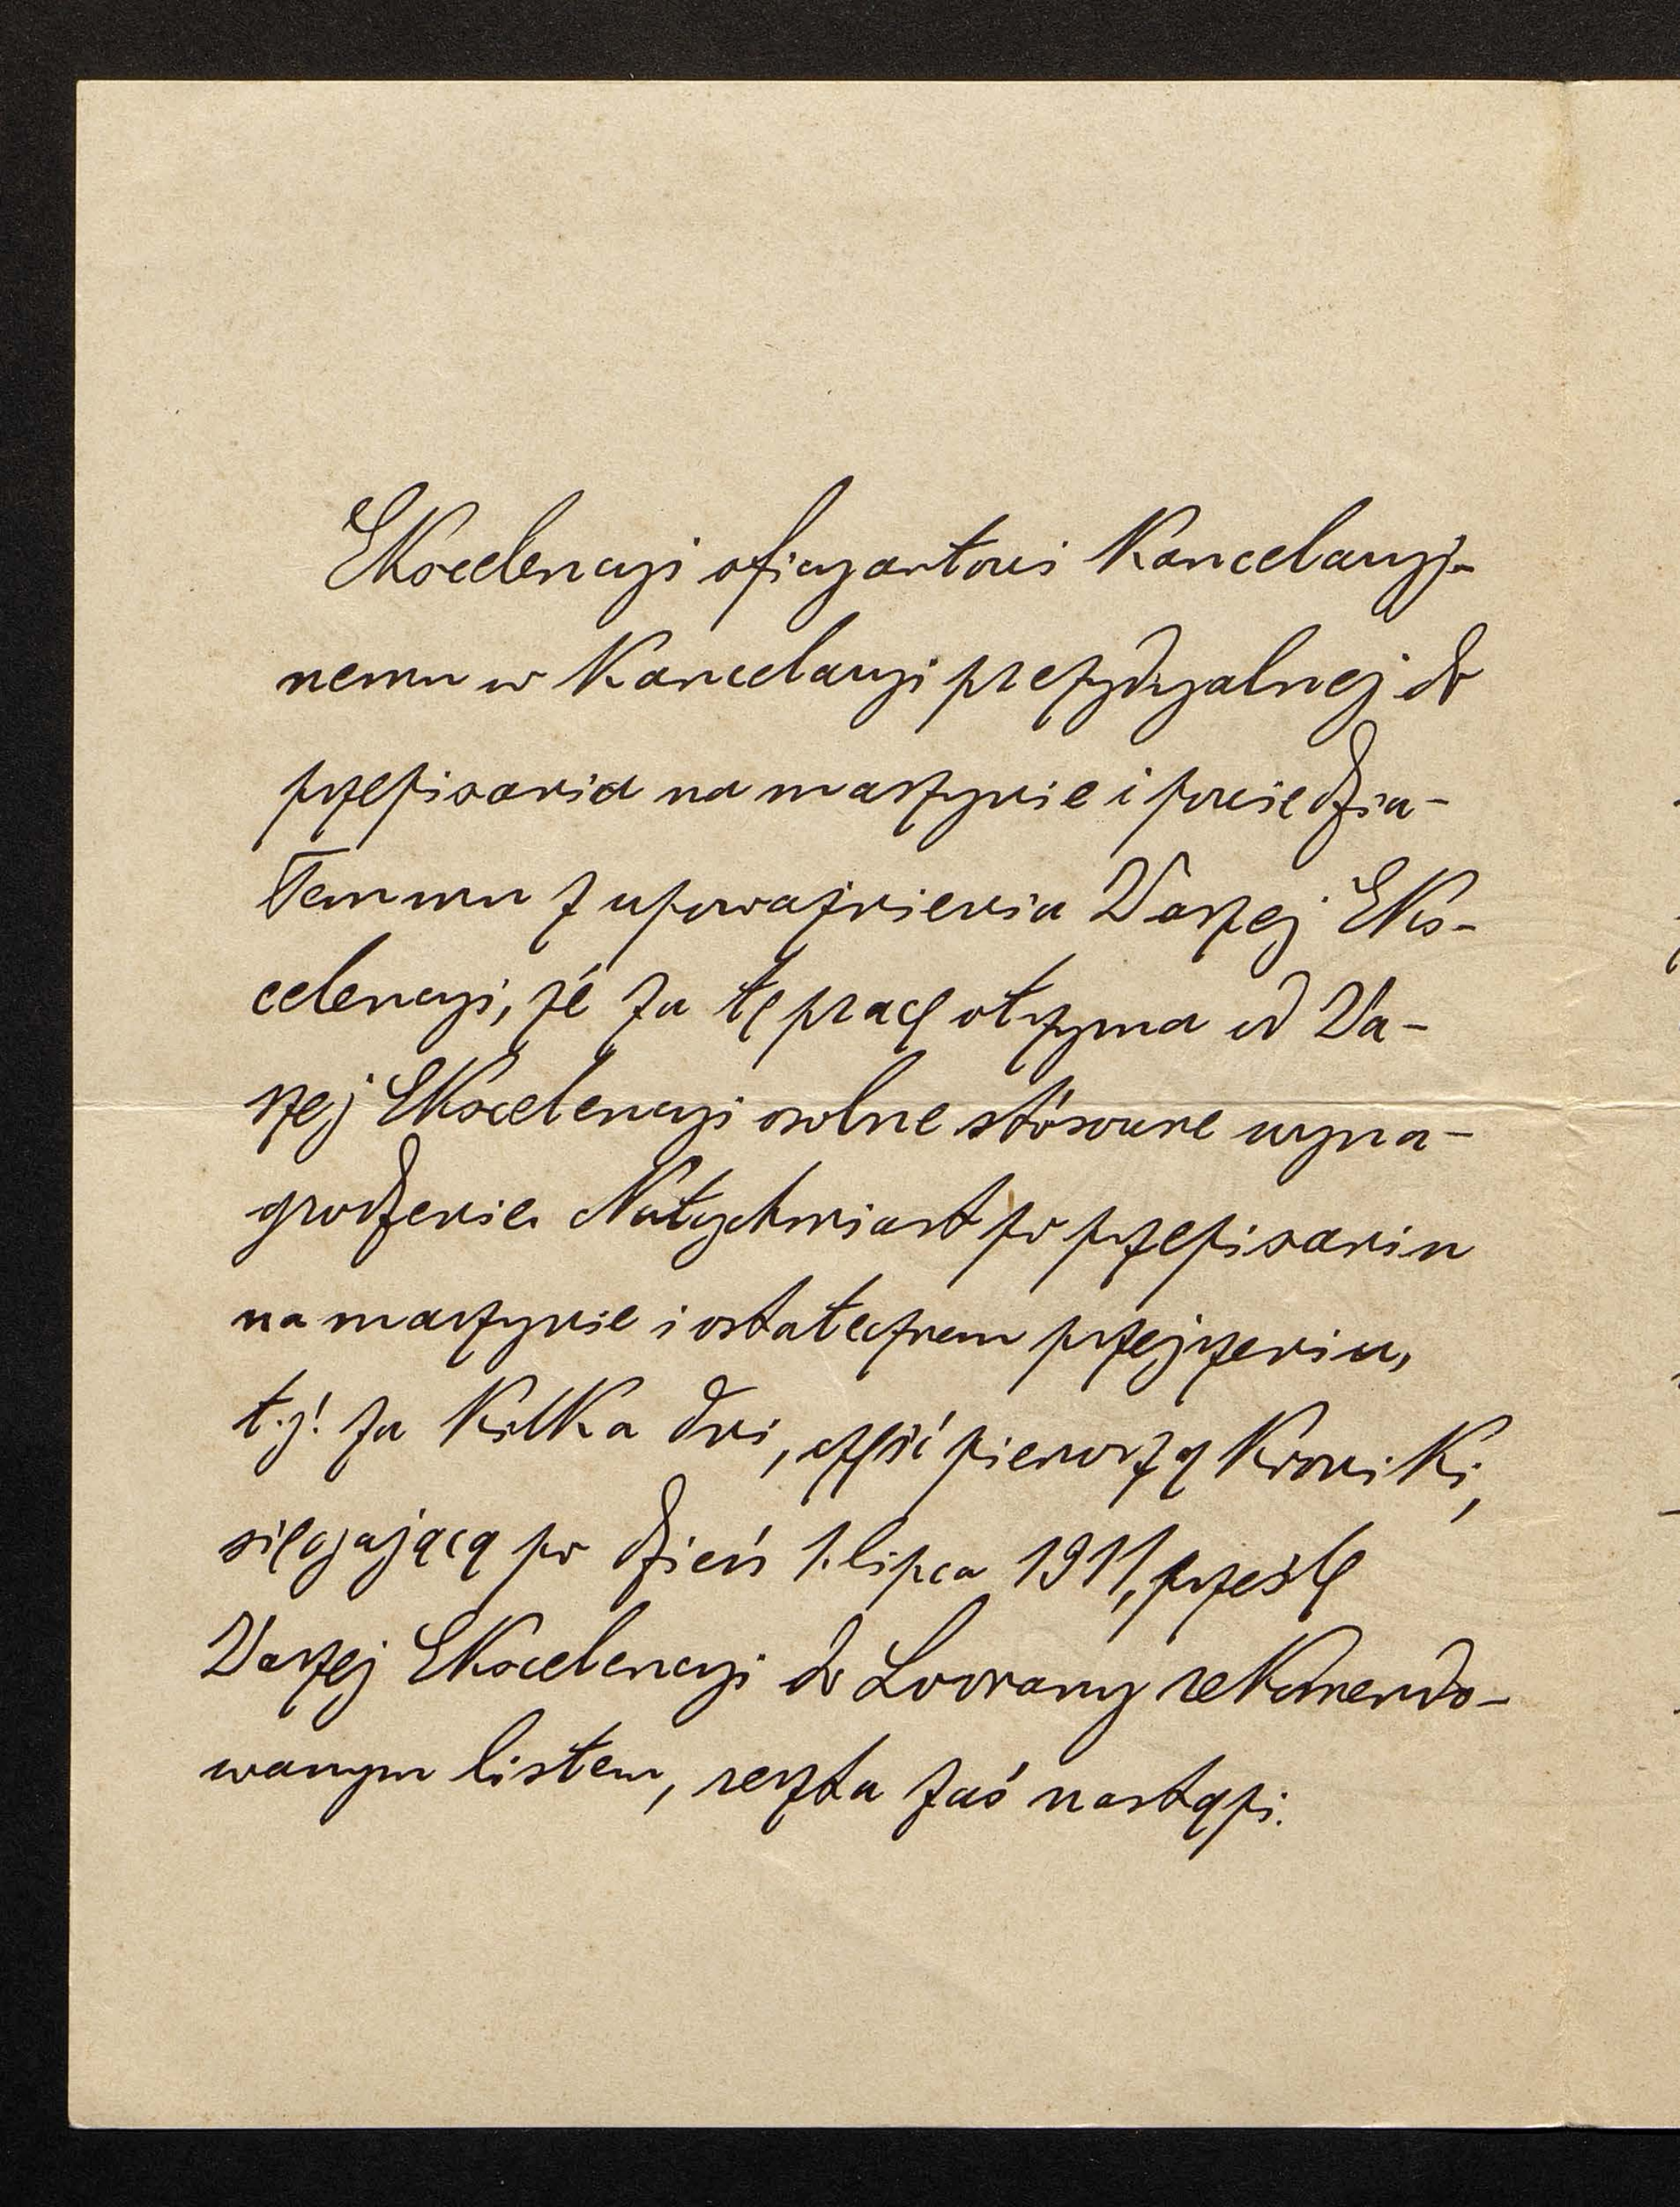 Ekscelencyi oficyantowi kancelaryj-
nemu w kancelaryi prezydyalnej do
przepisania na maszynie i powiedzia-
łem mu z upoważnienia Waszej Eks-
celencyi, że za tę pracę otrzyma od Wa-
szej Ekscelencyi osobne stósowne wyna-
grodzenie. Natychmiast po przepisaniu
na maszynie i ostatecznem przejrzeniu,
t. j. za kilka dni, część pierwszą kroniki,
sięgającą po dzień 1. lipca 1911, prześlę
Waszej Ekscelencyi do Lovrany rekomendo-
wanym listem, reszta zaś nastąpi.